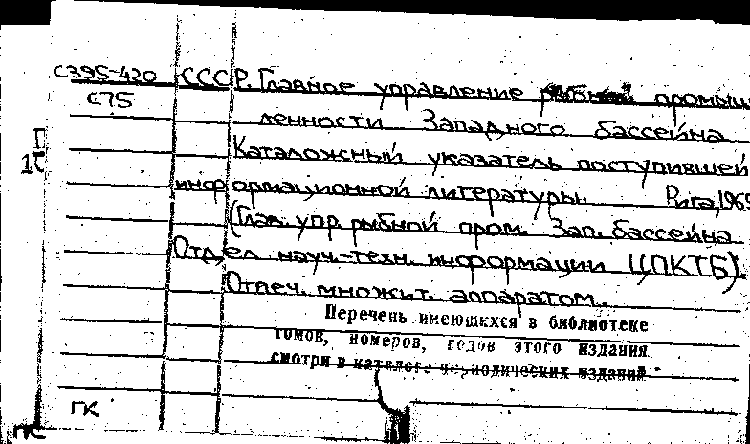 С395-420 СССР. Главное управление рыбной промыш
С75 ленности Западного бассейна
Каталожный указатель поступившей
информационной литературы. Рига, 1969
(Глав. упр. рыбной пром. Зап. бассейна
Отдел науч.-техн. информации ЦПКТБ).
Отпеч. множит. аппаратом.
Перечень имеющихся в библиотеке
томов, номеров, годов этого издания
смотри в каталоге периодических изданий
ГК